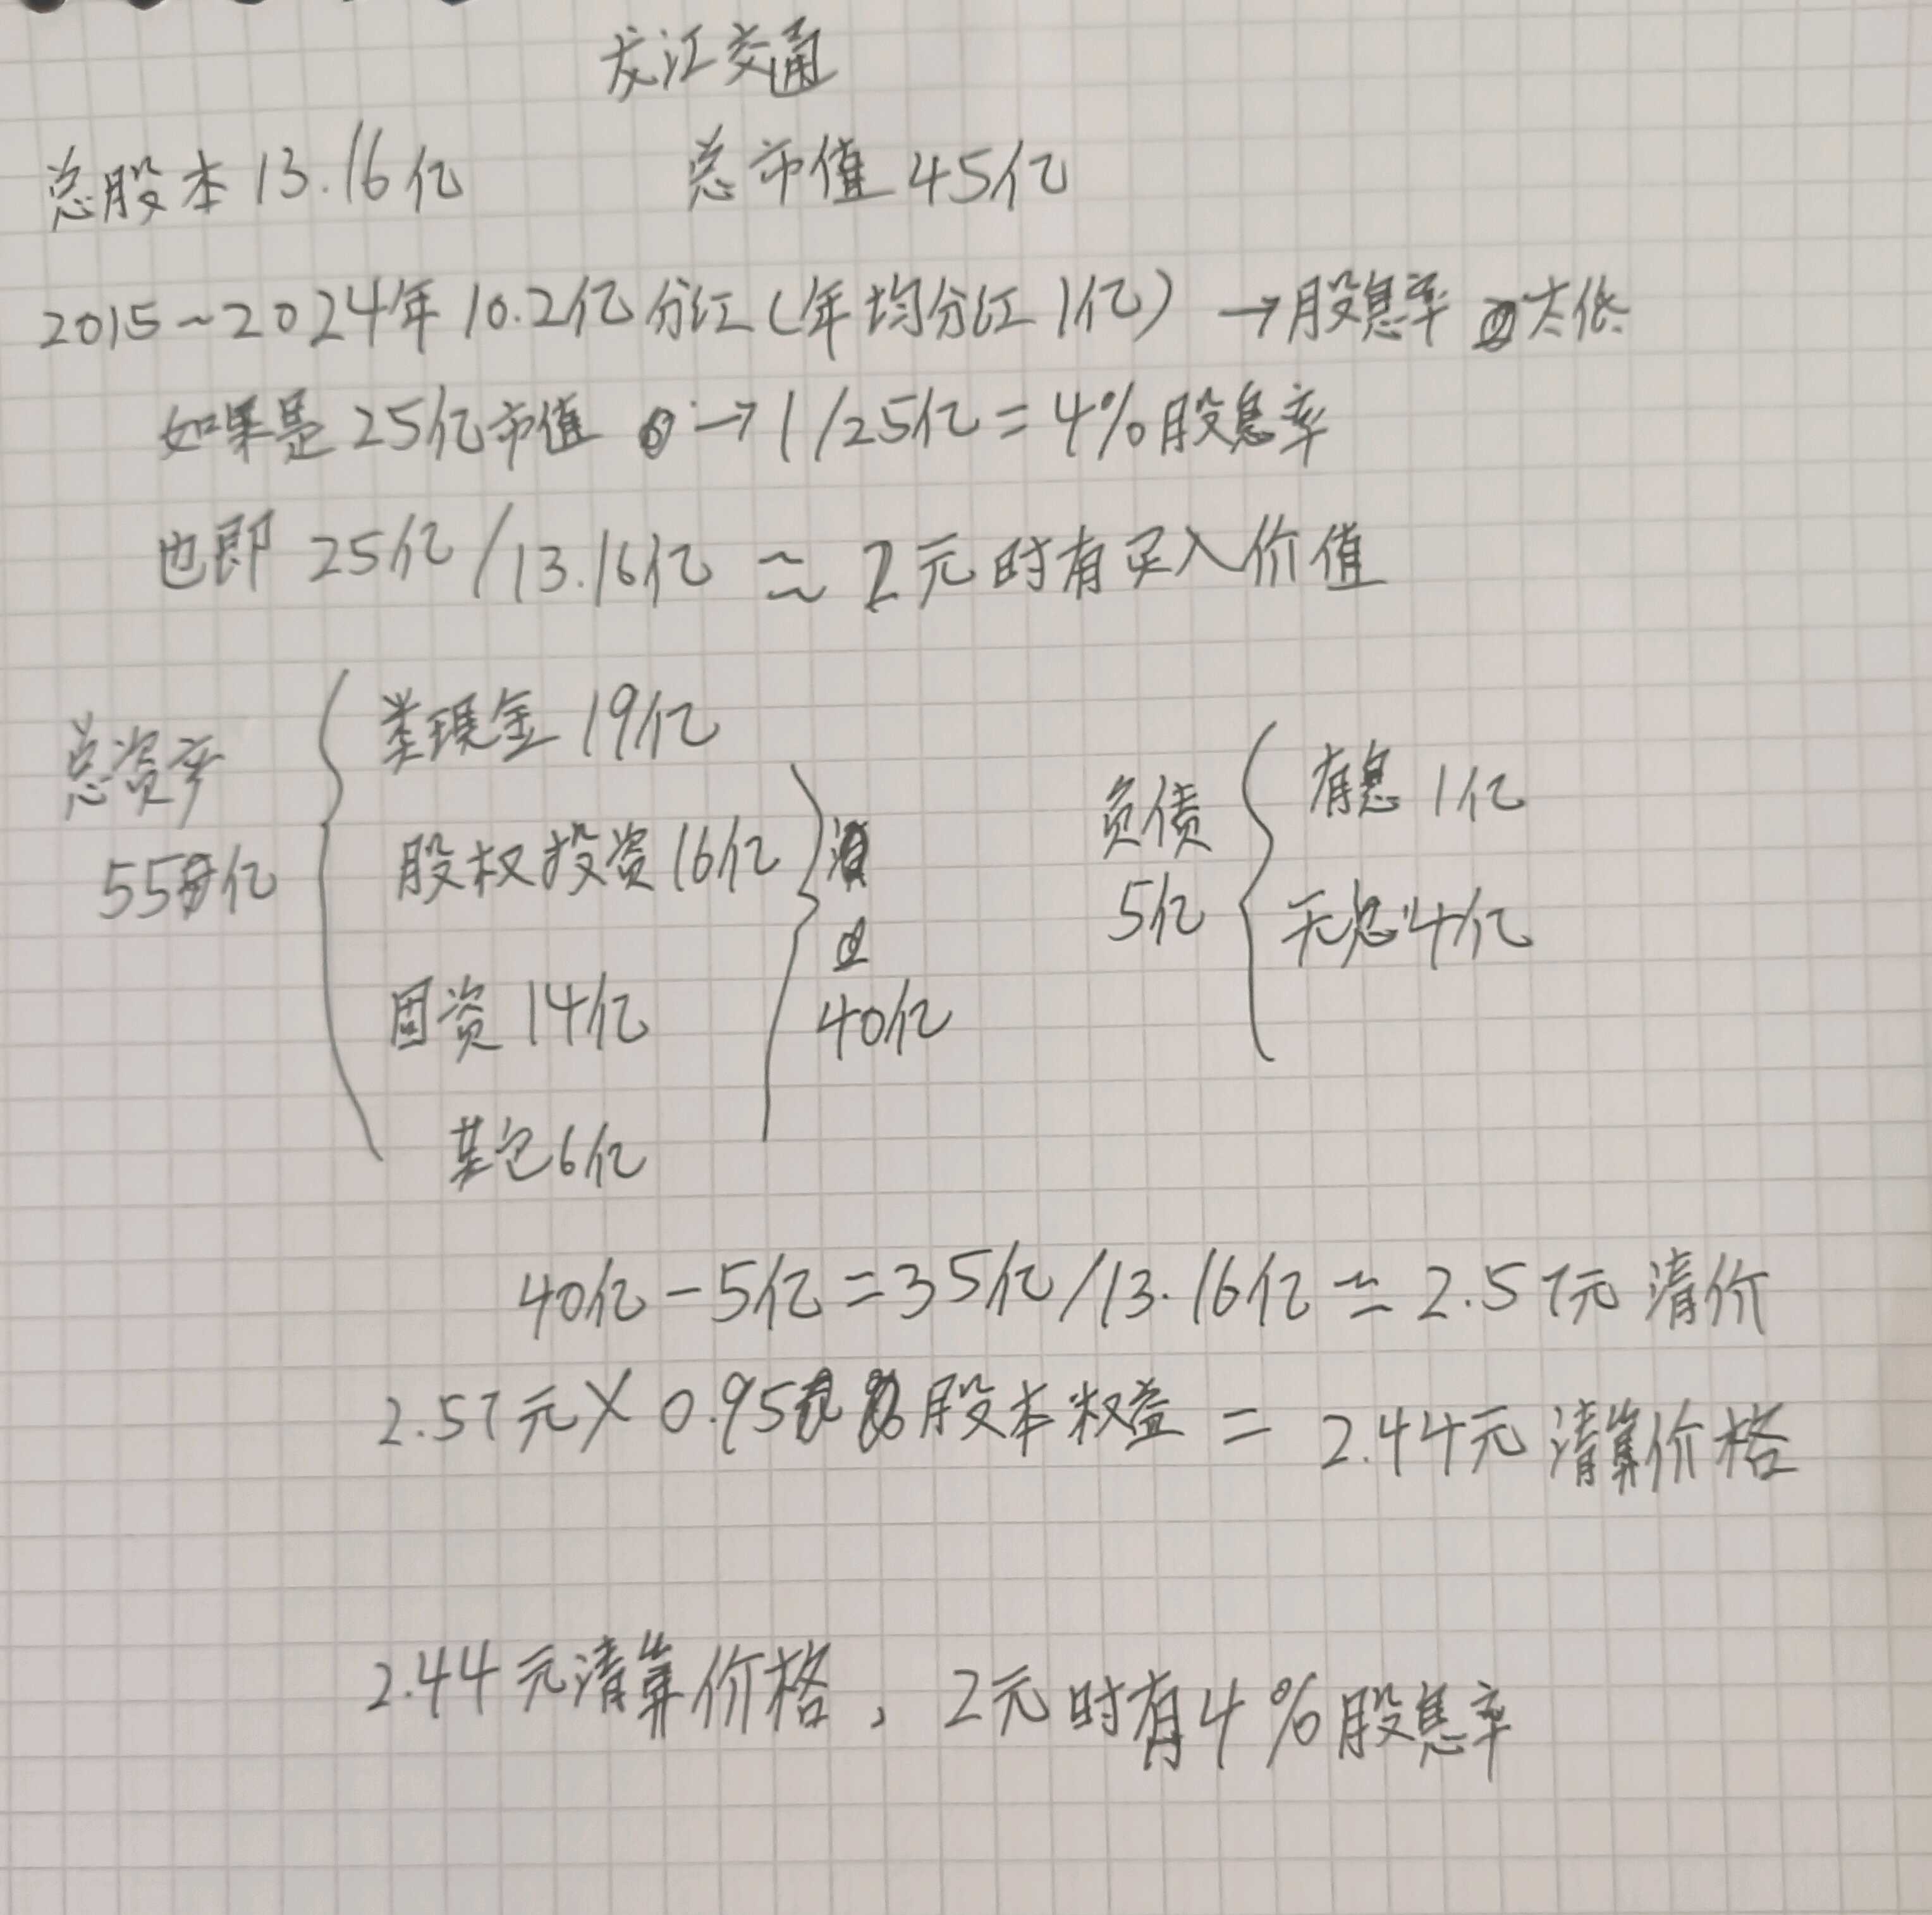 龙江交通
总股本 13.16亿 总市值 45亿
2015~2024年 10.2亿分红(年均分红1亿) →股息率 太低
如果是25亿市值 →1/25亿=4%股息率
也即 25亿/13.16亿 ≈ 2元时有买入价值
总资产
55亿
类现金 19亿
股权投资16亿
固资 14亿
其它6亿
40亿
负债
5亿
有息 1亿
无息 4亿
40亿-5亿=35亿/13.16亿≈2.57元 清价
2.57元×0.95 股本权益 = 2.44元清算价格
2.44元清算价格, 2元时有4%股息率